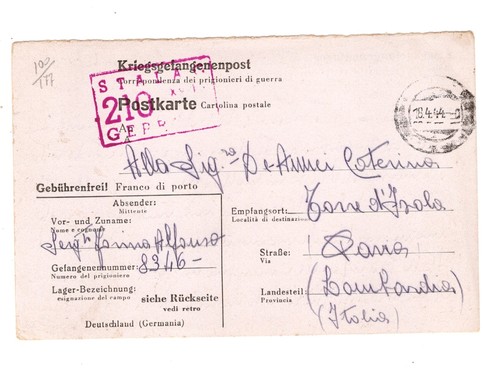 100
177
Kriegsgefangenenpost
Corrispondenza dei prigionieri di guerra
STALA
210
GEPR
Postkarte Cartolina postale
A
18.4.44
Alla Sig.ra De Amici Caterina
Gebührenfrei! Franco di porto
Absender:
Mittente
Vor- und Zuname:
Nome e cognome
Alfonso
Empfangsort: Torre d'Isola
Località di destinazione
Gefangenennummer: 8346-
Numero del prigioniero
Straße: Pavia
Via
Lager-Bezeichnung:
esignazione del campo
siehe Rückseite
vedi retro
Landesteil: (Lombardia)
Provincia
(Italia)
Deutschland (Germania)